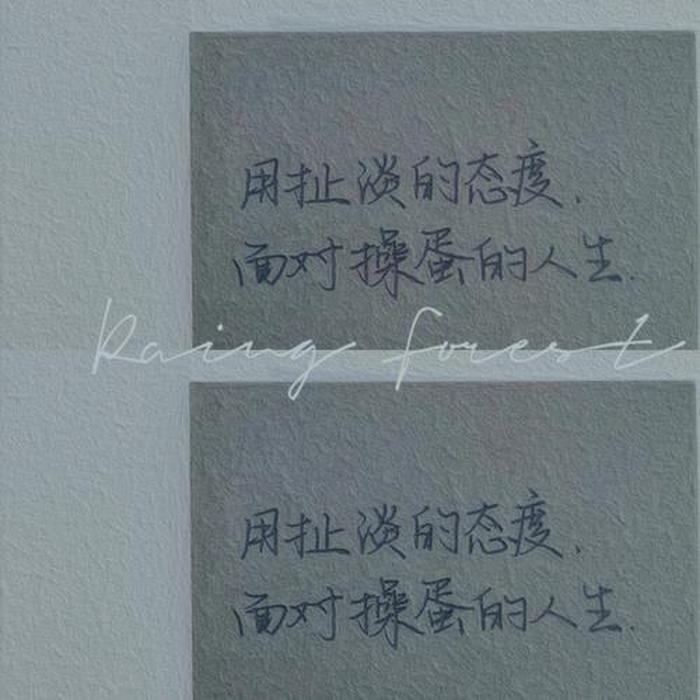 用扯淡的态度.
面对操蛋的人生.
Raing forest
用扯淡的态度.
面对操蛋的人生.